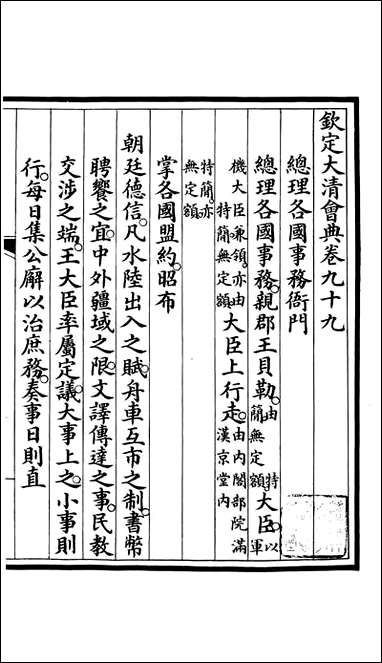 欽定大清會典卷九十九
總理各國事務衙門
總理各國事務親郡王貝勒由特簡無定額大臣以軍
機大臣兼領亦由特簡無定額大臣上行走由內閣部院滿漢京堂內
特簡亦無定額
掌各國盟約昭布
朝廷德信凡水陸出入之賦舟車互市之制書幣
聘饗之宜中外疆域之限文譯傳達之事民教
交涉之端王大臣率屬定議大事上之小事則
行每日集公廨以治庶務奏事日則直